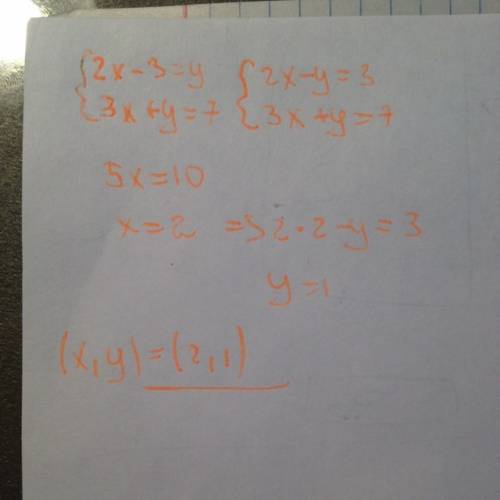 {2x-3=y {2x-y=3
{3x+y=7 {3x+y=7
5x=10
x=2 => 2·2-y=3
y=1
(x,y)=(2,1)